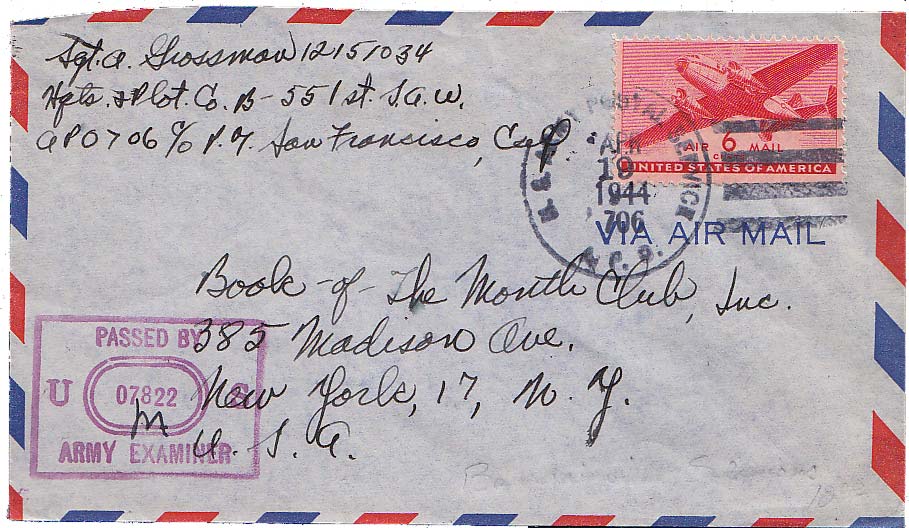 Sgt. A. Grossman 12151034
Hqts. & Plot. Co. B - 551st. S.A.W.
APO 706 c/o P.M. San Francisco, Cal
U. S. ARMY POSTAL SERVICE
APR
19
1944
706
A. P. O.
AIR 6 MAIL
CENTS
UNITED STATES OF AMERICA
VIA AIR MAIL
Book-of-The Month Club, Inc.
385 Madison Ave.
New York, 17, N. Y.
U. S. A.
PASSED BY
U 07822 S
M
ARMY EXAMINER